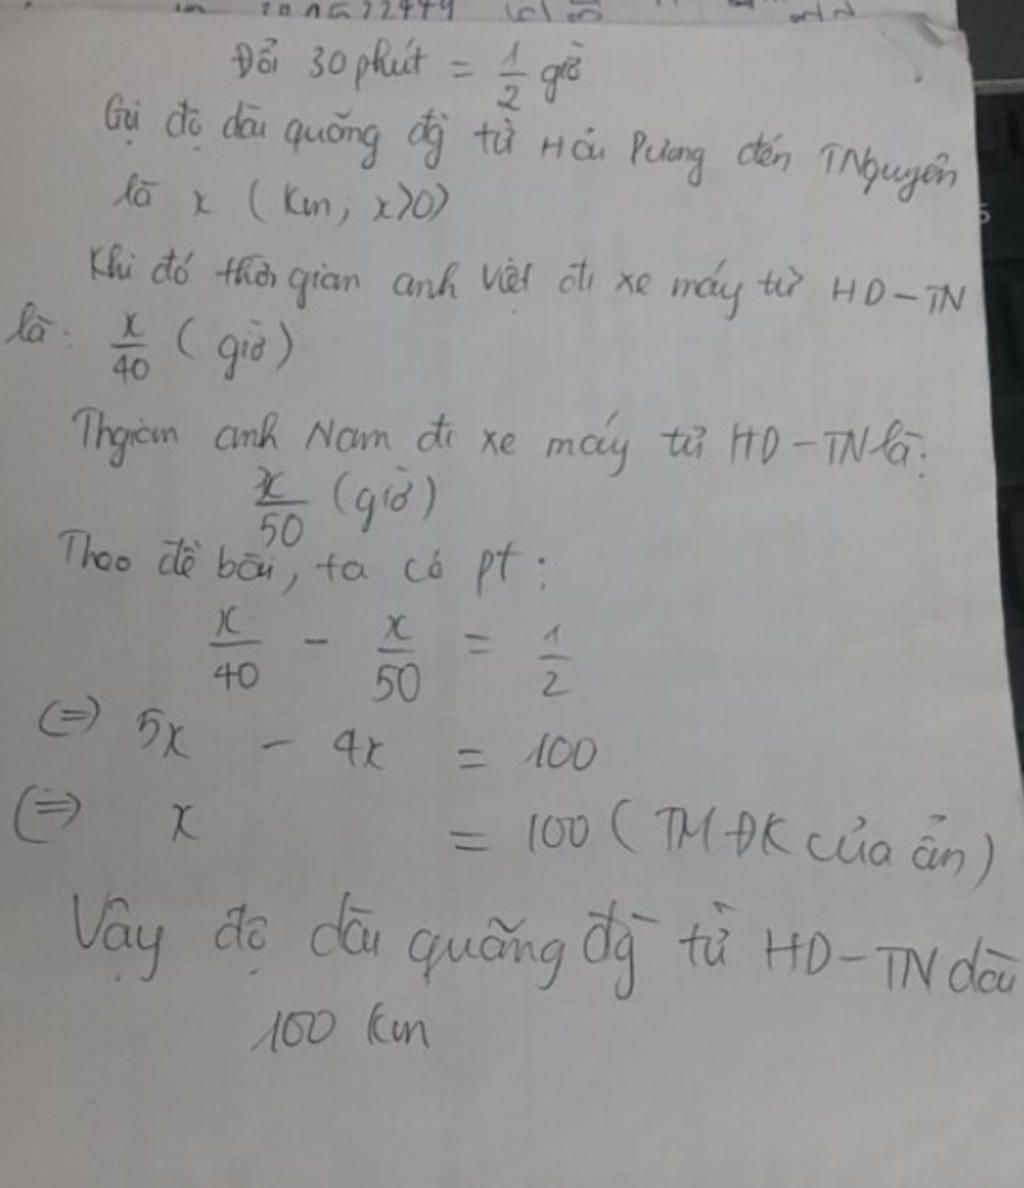 Đổi 30 phút = 1/2 giờ
Gọi độ dài quãng đg từ Hải Dương đến TNguyên
là x (Km, x>0)
Khi đó thời gian anh Việt đi xe máy từ HD-TN
là: x/40 (giờ)
Thgian anh Nam đi xe máy từ HD-TN là:
x/50 (giờ)
Theo đề bài, ta có pt:
x/40 - x/50 = 1/2
(=) 5x - 4x = 100
(=) x = 100 (TMĐK của ẩn)
Vậy độ dài quãng đg từ HD-TN dài
100 km